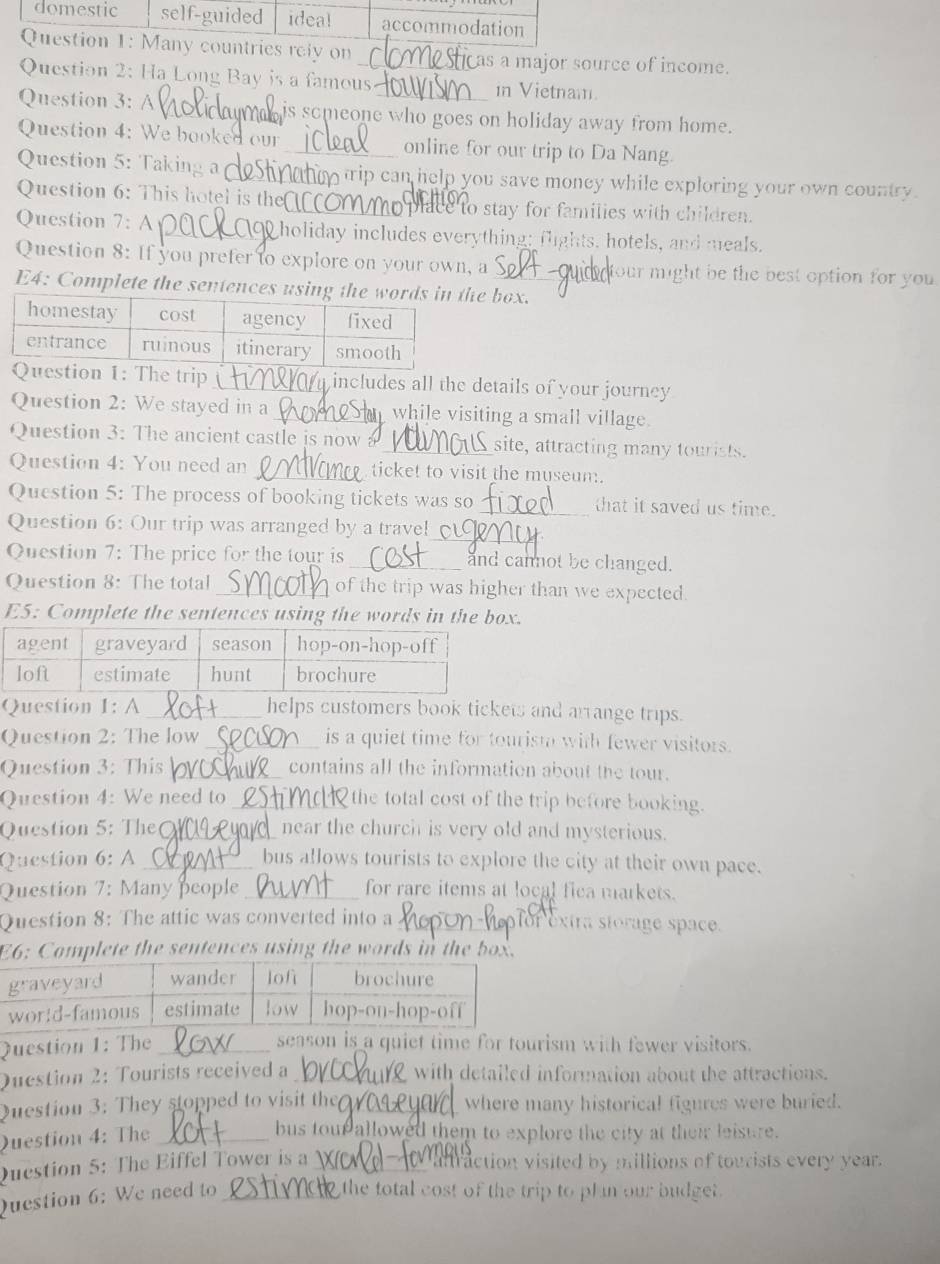 domestic self-guided ideal accommodation
Question 1: Many countries rely on domestic as a major source of income.
Question 2: Ha Long Bay is a famous tourism in Vietnam.
Question 3: A holidaymaker is someone who goes on holiday away from home.
Question 4: We booked our ideal online for our trip to Da Nang.
Question 5: Taking a destination trip can help you save money while exploring your own country.
Question 6: This hotel is the accommodation place to stay for families with children.
Question 7: A package holiday includes everything: flights, hotels, and meals.
Question 8: If you prefer to explore on your own, a self-guided tour might be the best option for you
E4: Complete the sentences using the words in the box.
homestay cost agency fixed
entrance ruinous itinerary smooth
Question 1: The trip itinerary includes all the details of your journey
Question 2: We stayed in a homestay while visiting a small village.
Question 3: The ancient castle is now a ruinous site, attracting many tourists.
Question 4: You need an entrance ticket to visit the museum.
Question 5: The process of booking tickets was so fixed that it saved us time.
Question 6: Our trip was arranged by a travel agency.
Question 7: The price for the tour is cost and cannot be changed.
Question 8: The total smooth of the trip was higher than we expected.
E5: Complete the sentences using the words in the box.
agent graveyard season hop-on-hop-off
loft estimate hunt brochure
Question 1: A loft helps customers book tickets and arrange trips.
Question 2: The low season is a quiet time for tourism with fewer visitors.
Question 3: This brochure contains all the information about the tour.
Question 4: We need to estimate the total cost of the trip before booking.
Question 5: The graveyard near the church is very old and mysterious.
Question 6: A agent bus allows tourists to explore the city at their own pace.
Question 7: Many people hunt for rare items at local flea markets.
Question 8: The attic was converted into a hop on-hop off for extra storage space.
E6: Complete the sentences using the words in the box.
graveyard wander loft brochure
world-famous estimate low hop-on-hop-off
Question 1: The low season is a quiet time for tourism with fewer visitors.
Question 2: Tourists received a brochure with detailed information about the attractions.
Question 3: They stopped to visit the graveyard where many historical figures were buried.
Question 4: The loft bus tour allowed them to explore the city at their leisure.
Question 5: The Eiffel Tower is a world-famous attraction visited by millions of tourists every year.
Question 6: We need to estimate the total cost of the trip to plan our budget.